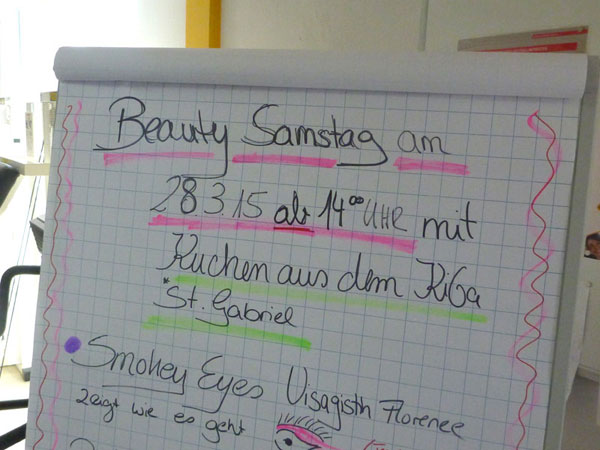 Beauty Samstag am
28.3.15 ab 14⁰⁰ UHR mit
Kuchen aus dem KiGa
*St. Gabriel
Smokey Eyes Visagistin Florence
zeigt wie es geht